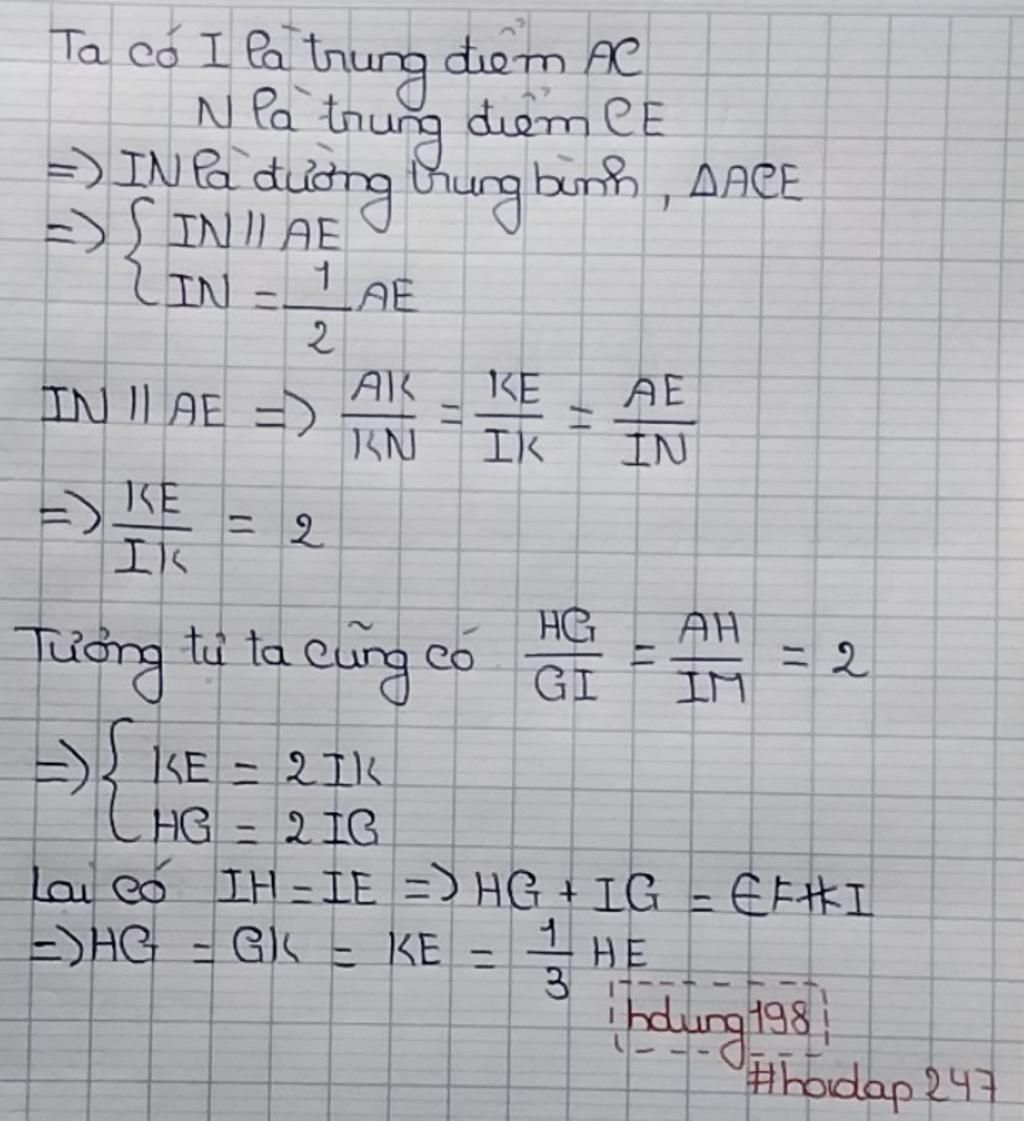 Ta có I là trung điểm AC
N là trung điểm CE
=> IN là đường trung bình, ΔACE
=> { IN // AE
IN = 1/2 AE
IN // AE => AK/KN = KE/IK = AE/IN
=> KE/IK = 2
Tương tự ta cũng có HG/GI = AH/IM = 2
=> { KE = 2IK
HG = 2IG
Lại có IH = IE => HG + IG =
=> HG = GK = KE = 1/3 HE
hdung198
#hoidap247